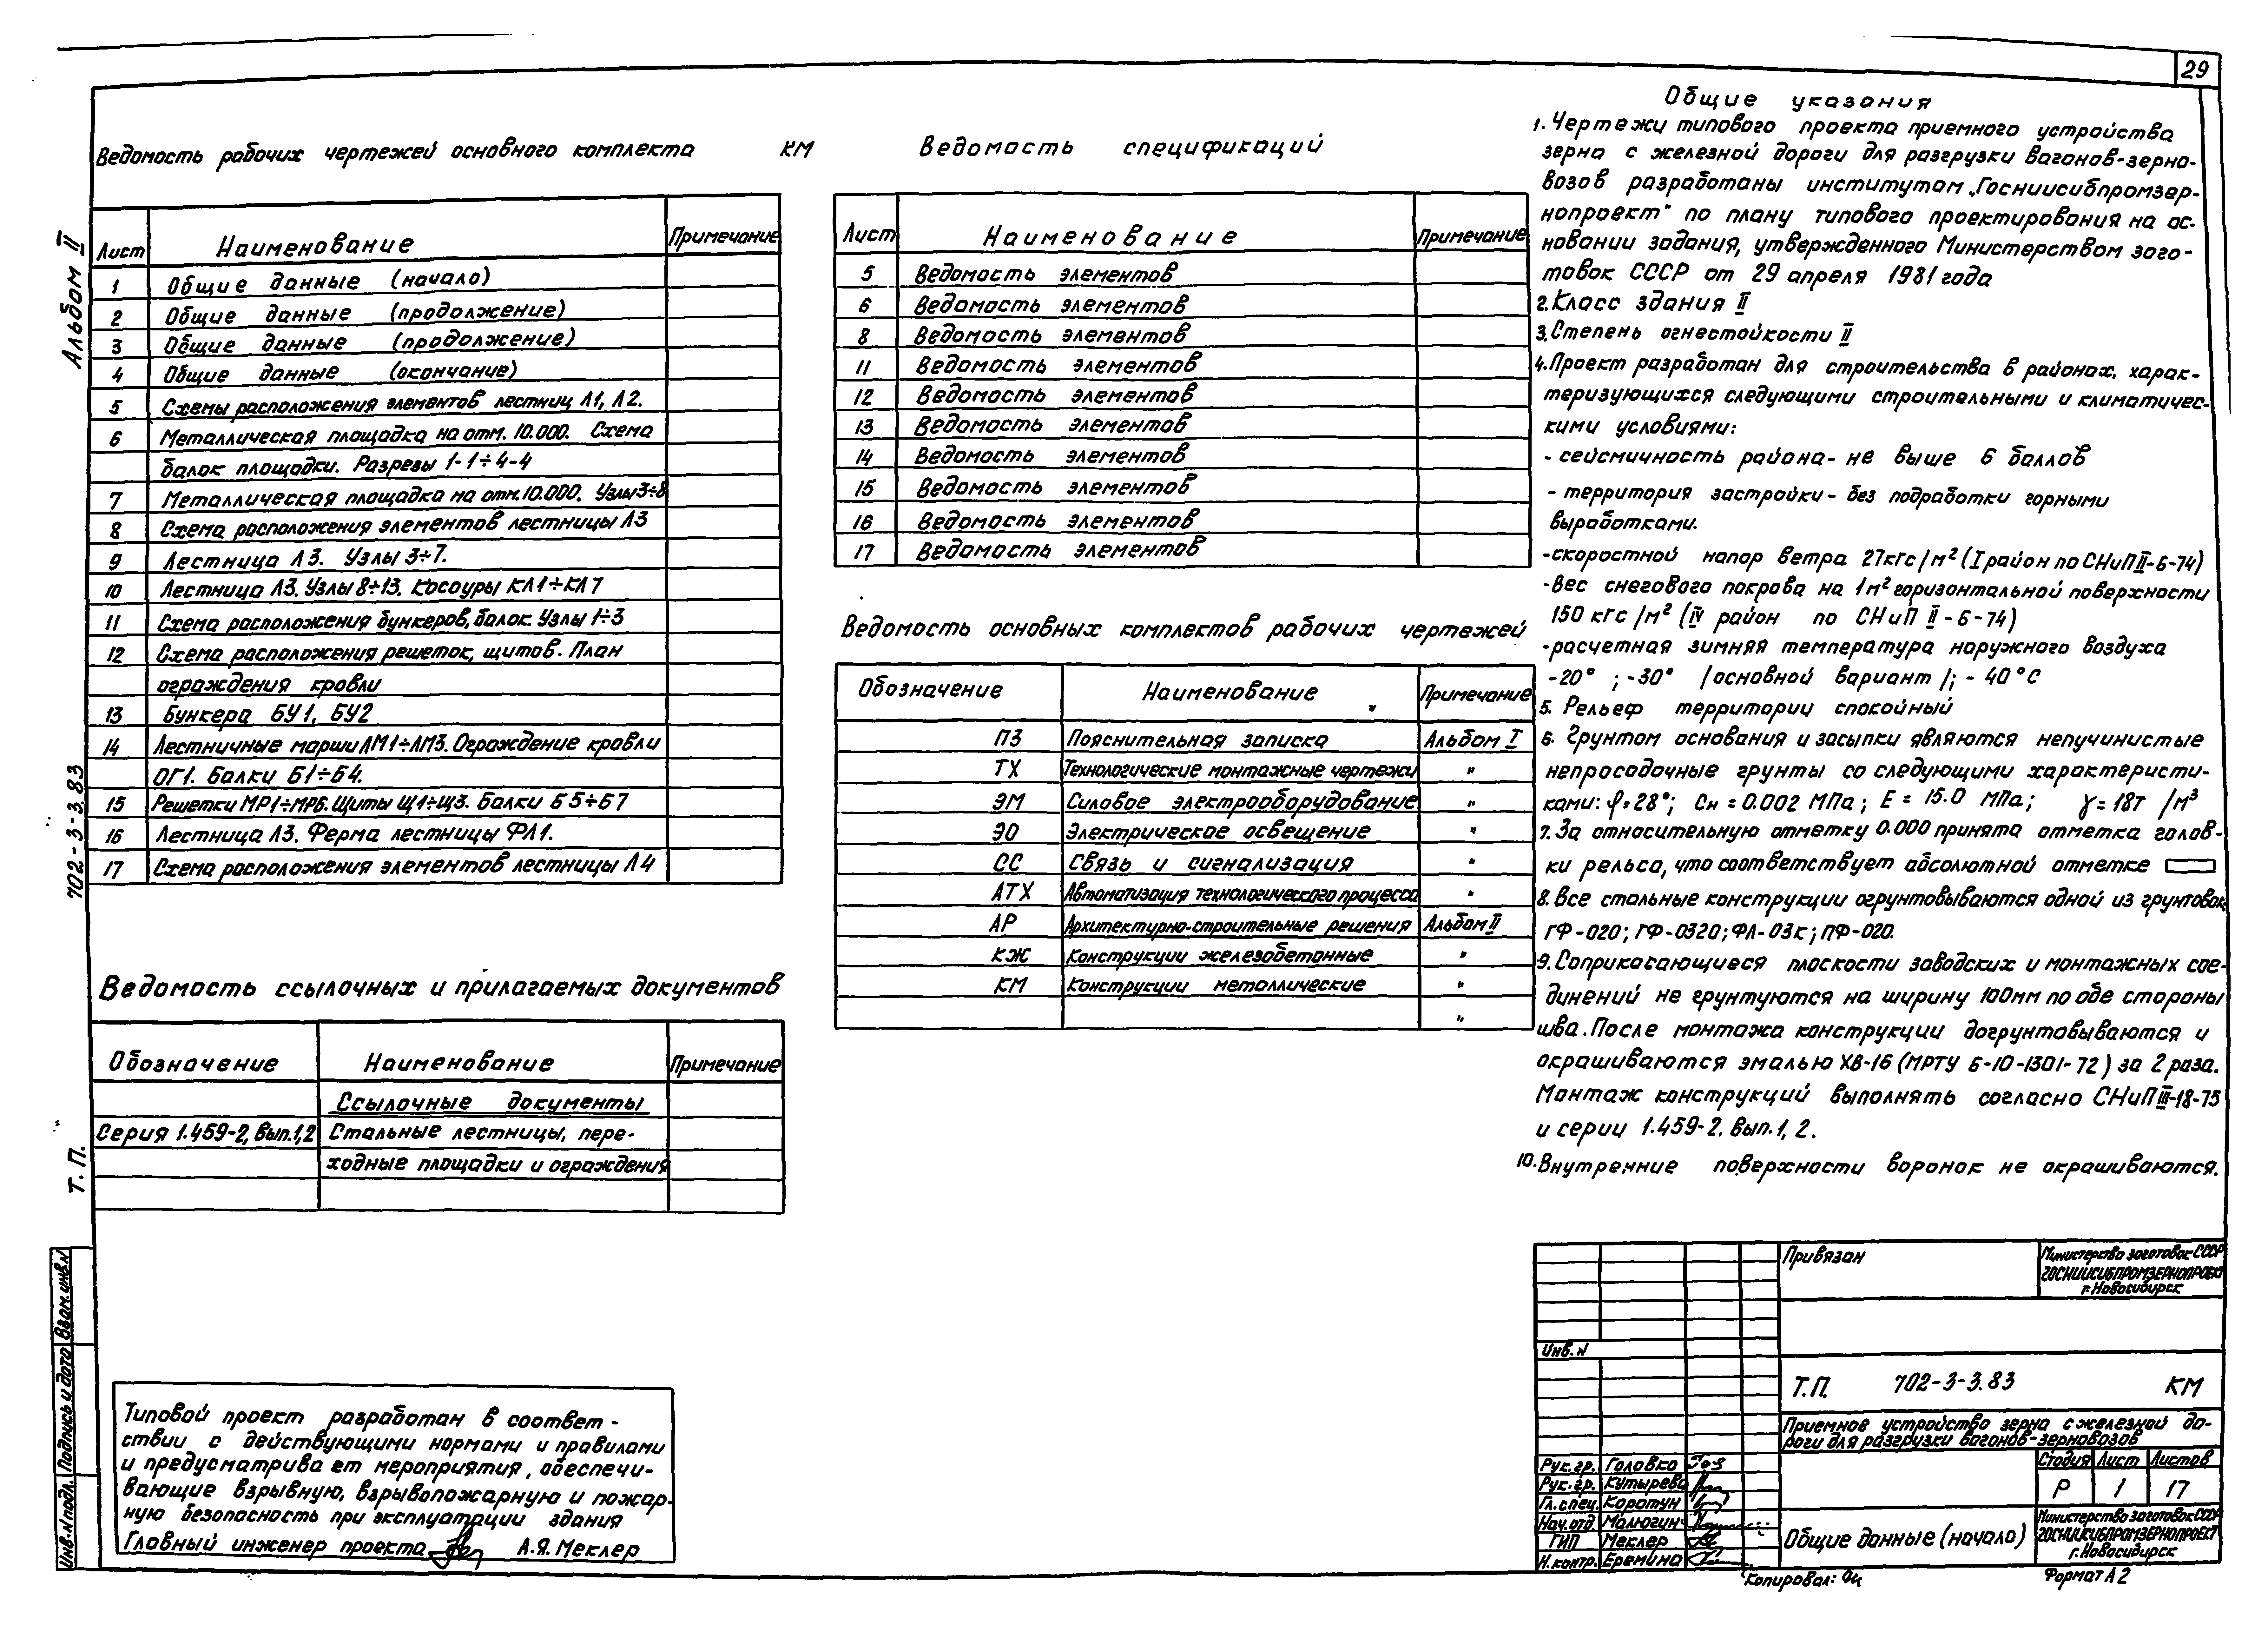 29
Альбом II
702-3-3.83
Т. П.
Ведомость рабочих чертежей основного комплекта КМ
Лист Наименование Примечание
1 Общие данные (начало)
2 Общие данные (продолжение)
3 Общие данные (продолжение)
4 Общие данные (окончание)
5 Схемы расположения элементов лестниц Л1, Л2.
6 Металлическая площадка на отм. 10.000. Схема
балок площадки. Разрезы 1-1÷4-4
7 Металлическая площадка на отм. 10.000. Узлы 3÷8
8 Схема расположения элементов лестницы Л3
9 Лестница Л3. Узлы 3÷7.
10 Лестница Л3. Узлы 8÷13. Косоуры КЛ1÷КЛ7
11 Схема расположения бункеров, балок. Узлы 1÷3
12 Схема расположения решеток, щитов. План
ограждения кровли
13 Бункера БУ1, БУ2
14 Лестничные марши ЛМ1÷ЛМ3. Ограждение кровли
ОГ1. Балки Б1÷Б4.
15 Решетки МР1÷МР6. Щиты Щ1÷Щ3. Балки Б5÷Б7
16 Лестница Л3. Ферма лестницы ФЛ1.
17 Схема расположения элементов лестницы Л4
Ведомость ссылочных и прилагаемых документов
Обозначение Наименование Примечание
Ссылочные документы
Серия 1.459-2, вып.1,2 Стальные лестницы, пере-
ходные площадки и ограждения
Типовой проект разработан в соответ-
ствии с действующими нормами и правилами
и предусматривает мероприятия, обеспечи-
вающие взрывную, взрывопожарную и пожар-
ную безопасность при эксплуатации здания
Главный инженер проекта А.Я. Меклер
Инв. N подл. Подпись и дата Взам. инв. N
Ведомость спецификаций
Лист Наименование Примечание
5 Ведомость элементов
6 Ведомость элементов
8 Ведомость элементов
11 Ведомость элементов
12 Ведомость элементов
13 Ведомость элементов
14 Ведомость элементов
15 Ведомость элементов
16 Ведомость элементов
17 Ведомость элементов
Ведомость основных комплектов рабочих чертежей
Обозначение Наименование Примечание
ПЗ Пояснительная записка Альбом I
ТХ Технологические монтажные чертежи "
ЭМ Силовое электрооборудование "
ЭО Электрическое освещение "
СС Связь и сигнализация "
АТХ Автоматизация технологического процесса "
АР Архитектурно-строительные решения Альбом II
КЖ Конструкции железобетонные "
КМ Конструкции металлические "
"
Общие указания
1. Чертежи типового проекта приемного устройства
зерна с железной дороги для разгрузки вагонов-зерно-
возов разработаны институтом „Госниисибпромзер-
нопроект" по плану типового проектирования на ос-
новании задания, утвержденного Министерством заго-
товок СССР от 29 апреля 1981 года
2. Класс здания II
3. Степень огнестойкости II
4. Проект разработан для строительства в районах, харак-
теризующихся следующими строительными и климатичес-
кими условиями:
- сейсмичность района - не выше 6 баллов
- территория застройки - без подработки горными
выработками.
- скоростной напор ветра 27 кгс/м² (I район по СНиП II-6-74)
- Вес снегового покрова на 1м² горизонтальной поверхности
150 кгс/м² (IV район по СНиП II-6-74)
- расчетная зимняя температура наружного воздуха
-20° ; -30° /основной вариант/; - 40°С
5. Рельеф территории спокойный
6. Грунтом основания и засыпки являются непучинистые
непросадочные грунты со следующими характеристи-
ками: φ=28°; Сн=0.002 МПа; Е= 15.0 МПа; γ=18т /м³
7. За относительную отметку 0.000 принята отметка голов-
ки рельса, что соответствует абсолютной отметке
8. Все стальные конструкции огрунтовываются одной из грунтовок:
ГФ-020; ГФ-0320; ФЛ-03к; ПФ-020.
9. Соприкасающиеся плоскости заводских и монтажных сое-
динений не грунтуются на ширину 100мм по обе стороны
шва. После монтажа конструкции догрунтовываются и
окрашиваются эмалью ХВ-16 (МРТУ 6-10-1301-72) за 2 раза.
Монтаж конструкций выполнять согласно СНиП III-18-75
и серии 1.459-2. вып. 1, 2.
10. Внутренние поверхности воронок не окрашиваются.
Привязан
Министерство заготовок СССР
ГОСНИИСИБПРОМЗЕРНОПРОЕКТ
г. Новосибирск
Инв. N
Т.П. 702-3-3.83 КМ
Приемное устройство зерна с железной до-
роги для разгрузки вагонов-зерновозов
Рук. гр. Головко
Рук. гр. Кутырева
Гл. спец. Коротун
Нач. отд. Малюгин
ГИП Меклер
Н. контр. Еремина
Стадия Лист Листов
Р 1 17
Общие данные (начало)
Министерство заготовок СССР
ГОСНИИСИБПРОМЗЕРНОПРОЕКТ
г. Новосибирск
Копировал:
Формат А2